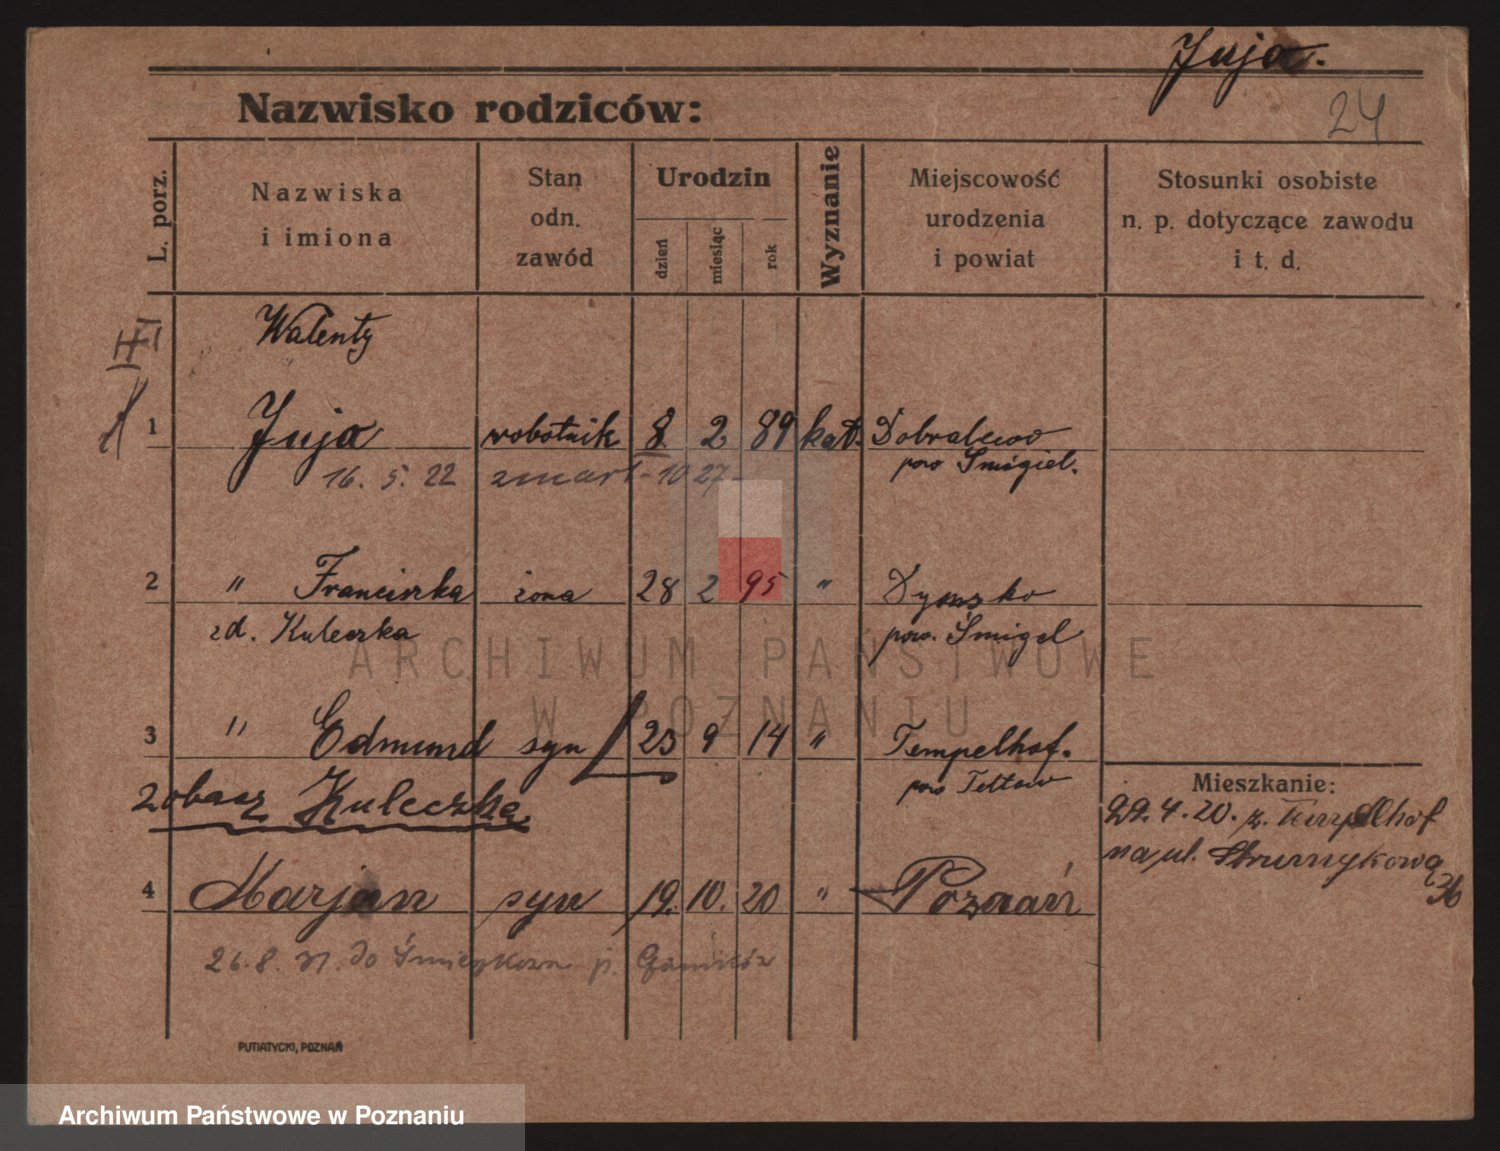 Juja.
24
Nazwisko rodziców:
L. porz.
Nazwiska
i imiona
Stan
odn.
zawód
Urodzin
dzień
miesiąc
rok
Wyznanie
Miejscowość
urodzenia
i powiat
Stosunki osobiste
n. p. dotyczące zawodu
i t. d.
Walenty
1 Juja robotnik 8. 2 89 kat. Dobralewo
pow Śmigiel.
16. 5. 22 zmarł - 10 27 -
2 " Franciszka żona 28 2 95 "
zd. Kuleczka pow. Śmigel
ARCHIWUM PAŃSTWOWE
W POZNANIU
3 " Edmund syn 23 9 14 " Tempelhof.
pow Teltow
zobacz Kuleczka
Mieszkanie:
22.4.20. z. Tempelhof
na ul.
4 Marjan syn 19. 10. 20 " Poznań
26.8.31. do p.
PUTIATYCKI, POZNAŃ
Archiwum Państwowe w Poznaniu